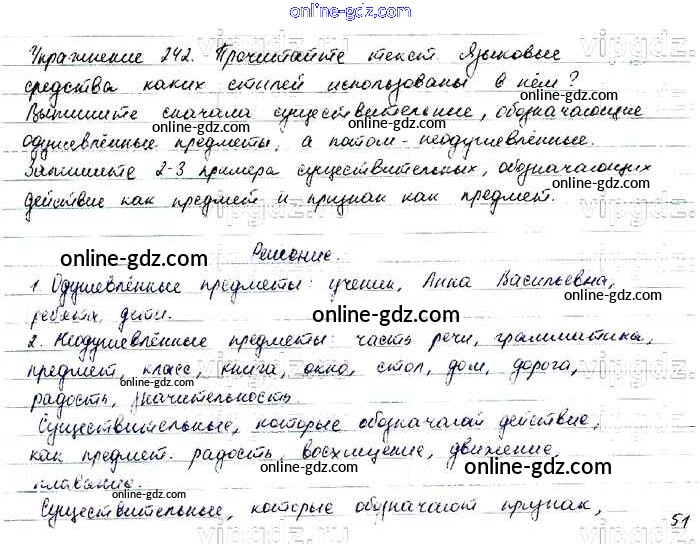 online-gdz.com
Упражнение 242. Прочитайте текст. Языковые
средства каких стилей использованы в нём?
Выпишите сначала существительные, обозначающие
одушевлённые предметы, а потом - неодушевлённые.
Запишите 2-3 примера существительных, обозначающих
действие как предмет и признак как предмет.
Решение.
1. Одушевлённые предметы: ученик, Анна Васильевна,
ребята, дети.
2. Неодушевлённые предметы: часть речи, грамматика,
предмет, класс, книга, окно, стол, дом, дорога,
радость, значительность.
Существительные, которые обозначают действие,
как предмет: радость, восхищение, движение,
плавание.
Существительные, которые обозначают признак,
51